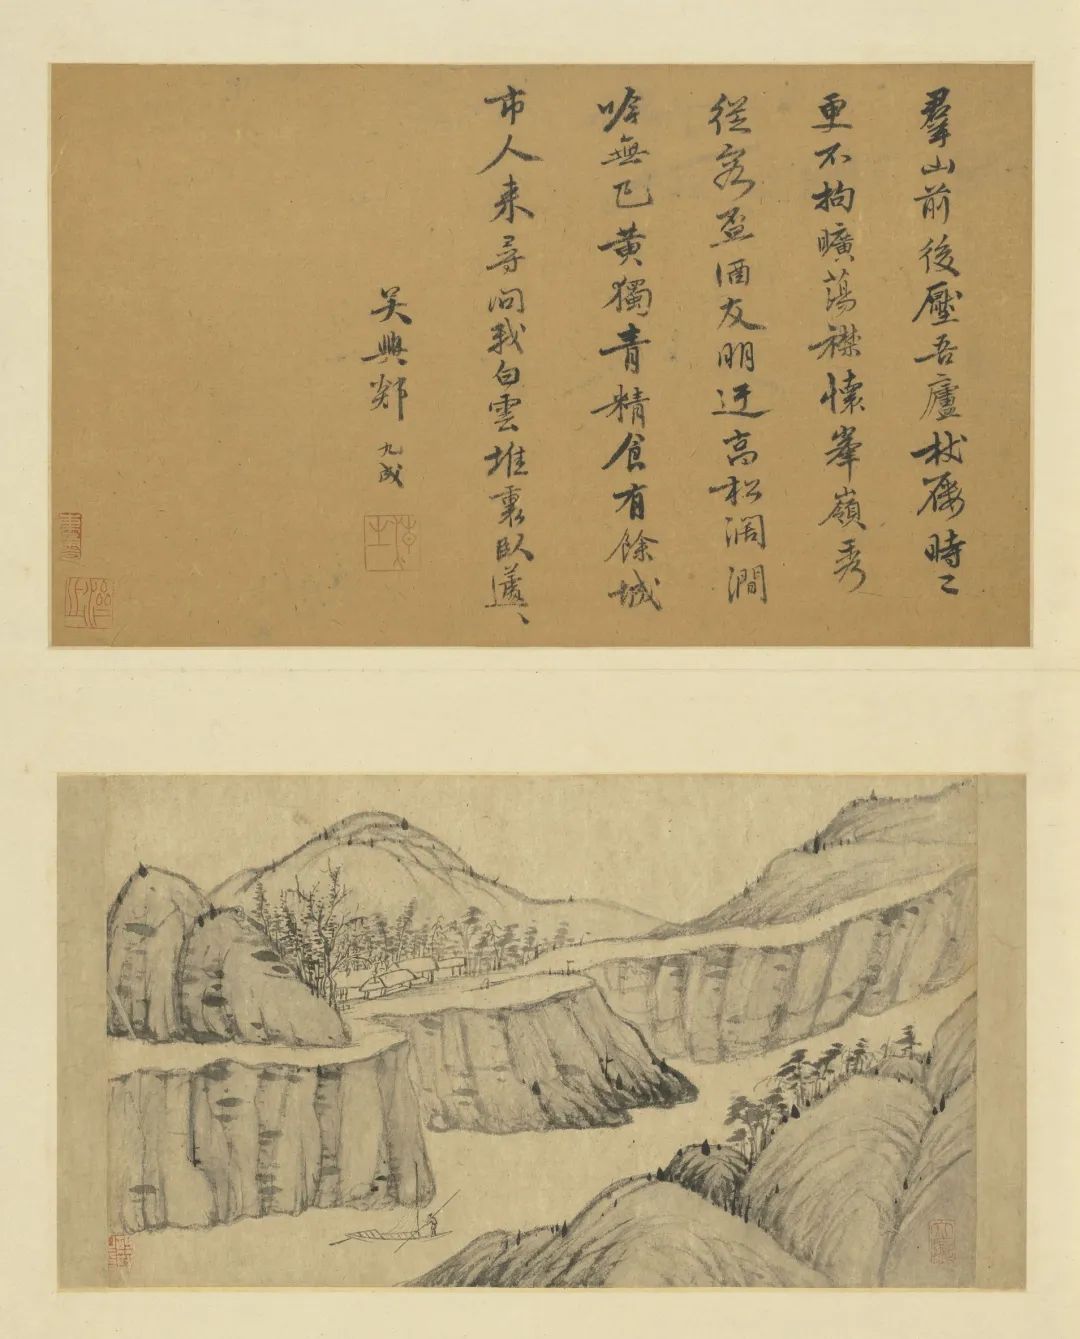 羣山前後壓吾廬杖屨時〻
更不拘曠蕩襟懷峯嶺秀
從容盃酒友朋迂高松濶澗
吟無已黃獨青精食有餘城
市人来尋问我白雲堆裏臥
吴興郯九成